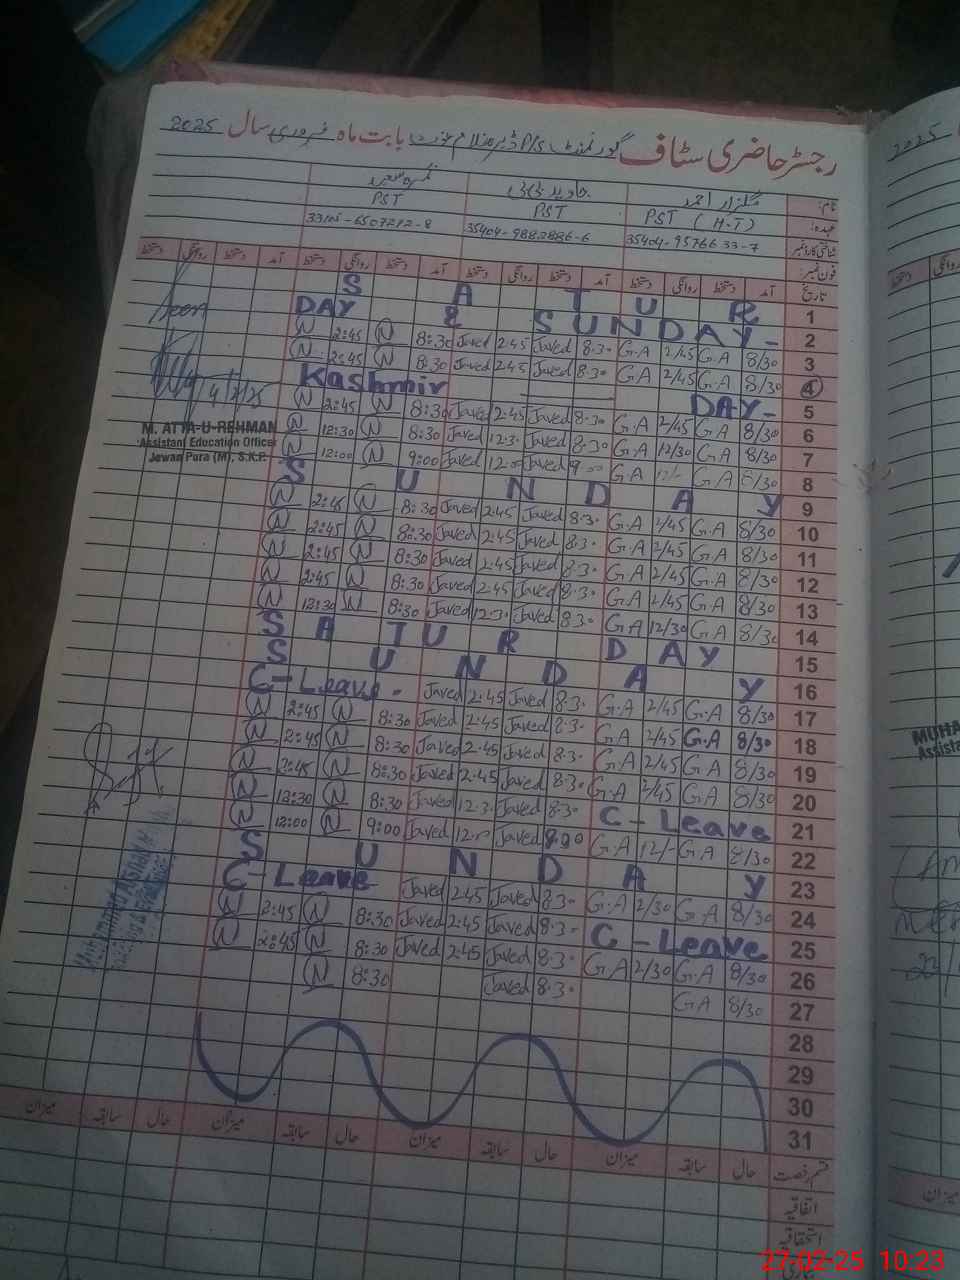 رجسٹر حاضری سٹاف گورنمنٹ P/s بابت ماہ فروری سال 2025
نام: گلزار احمد
عہدہ: PST (H.T) PST PST
شناختی کارڈ نمبر 35404-9576633-7 35404-9882886-6
فون نمبر:
تاریخ آمد دستخط روانگی دستخط آمد دستخط روانگی دستخط آمد دستخط روانگی دستخط آمد دستخط روانگی دستخط
1 SATUR
2 DAY & SUNDAY-
3 8/30 G.A 2/45 G.A 8.30 Javed 2.45 Javed 8:30 N 2:45 N
4 8/30 G.A 2/45 G.A 8.30 Javed 2.45 Javed 8:30 N 2:45 N
5 Kashmir DAY-
6 8/30 G.A 2/45 G.A 8.30 Javed 2.45 Javed 8:30 N 2:45 N
7 8/30 G.A 12/30 G.A 8.30 Javed 12.30 Javed 8:30 N 12:30 N
8 8/30 G.A 12/- G.A 9.00 Javed 12.00 Javed 9:00 N 12:00 N
9 SUNDAY
10 8/30 G.A 2/45 G.A 8.30 Javed 2.45 Javed 8:30 N 2:45 N
11 8/30 G.A 2/45 G.A 8.30 Javed 2.45 Javed 8:30 N 2:45 N
12 8/30 G.A 2/45 G.A 8.30 Javed 2.45 Javed 8:30 N 2:45 N
13 8/30 G.A 2/45 G.A 8.30 Javed 2.45 Javed 8:30 N 2:45 N
14 8/30 G.A 12/30 G.A 8.30 Javed 12.30 Javed 8:30 N 12:30 N
15 SATURDAY
16 SUNDAY
17 8/30 G.A 2/45 G.A 8.30 Javed 2.45 Javed C-Leave-
18 8/30 G.A 2/45 G.A 8.30 Javed 2.45 Javed 8:30 N 2:45 N
19 8/30 G.A 2/45 G.A 8.30 Javed 2.45 Javed 8:30 N 2:45 N
20 8/30 G.A 2/45 G.A 8.30 Javed 2.45 Javed 8:30 N 2:45 N
21 C-Leave 8.30 Javed 12.30 Javed 8:30 N 12:30 N
22 8/30 G.A 12/- G.A Javed Javed 9:00 N 12:00 N
23 SUNDAY
24 8/30 G.A 2/30 G.A 8.30 Javed 2.45 Javed C-Leave
25 C-Leave 8.30 Javed 2.45 Javed 8:30 N 2:45 N
26 8/30 G.A 2/30 G.A 8.30 Javed 2.45 Javed 8:30 N 2:45 N
27 8/30 G.A 8.30 Javed 8:30 N
28
29
30
31
قسم رخصت حال سابقہ میزان حال سابقہ میزان حال سابقہ میزان حال سابقہ میزان
اتفاقیہ
استحقاقیہ
M. ATTA-U-REHMAN
Assistant Education Officer
Jewan Pura (M), S.K.P.
2025
روانگی دستخط
میزان
27-02-25 10:23